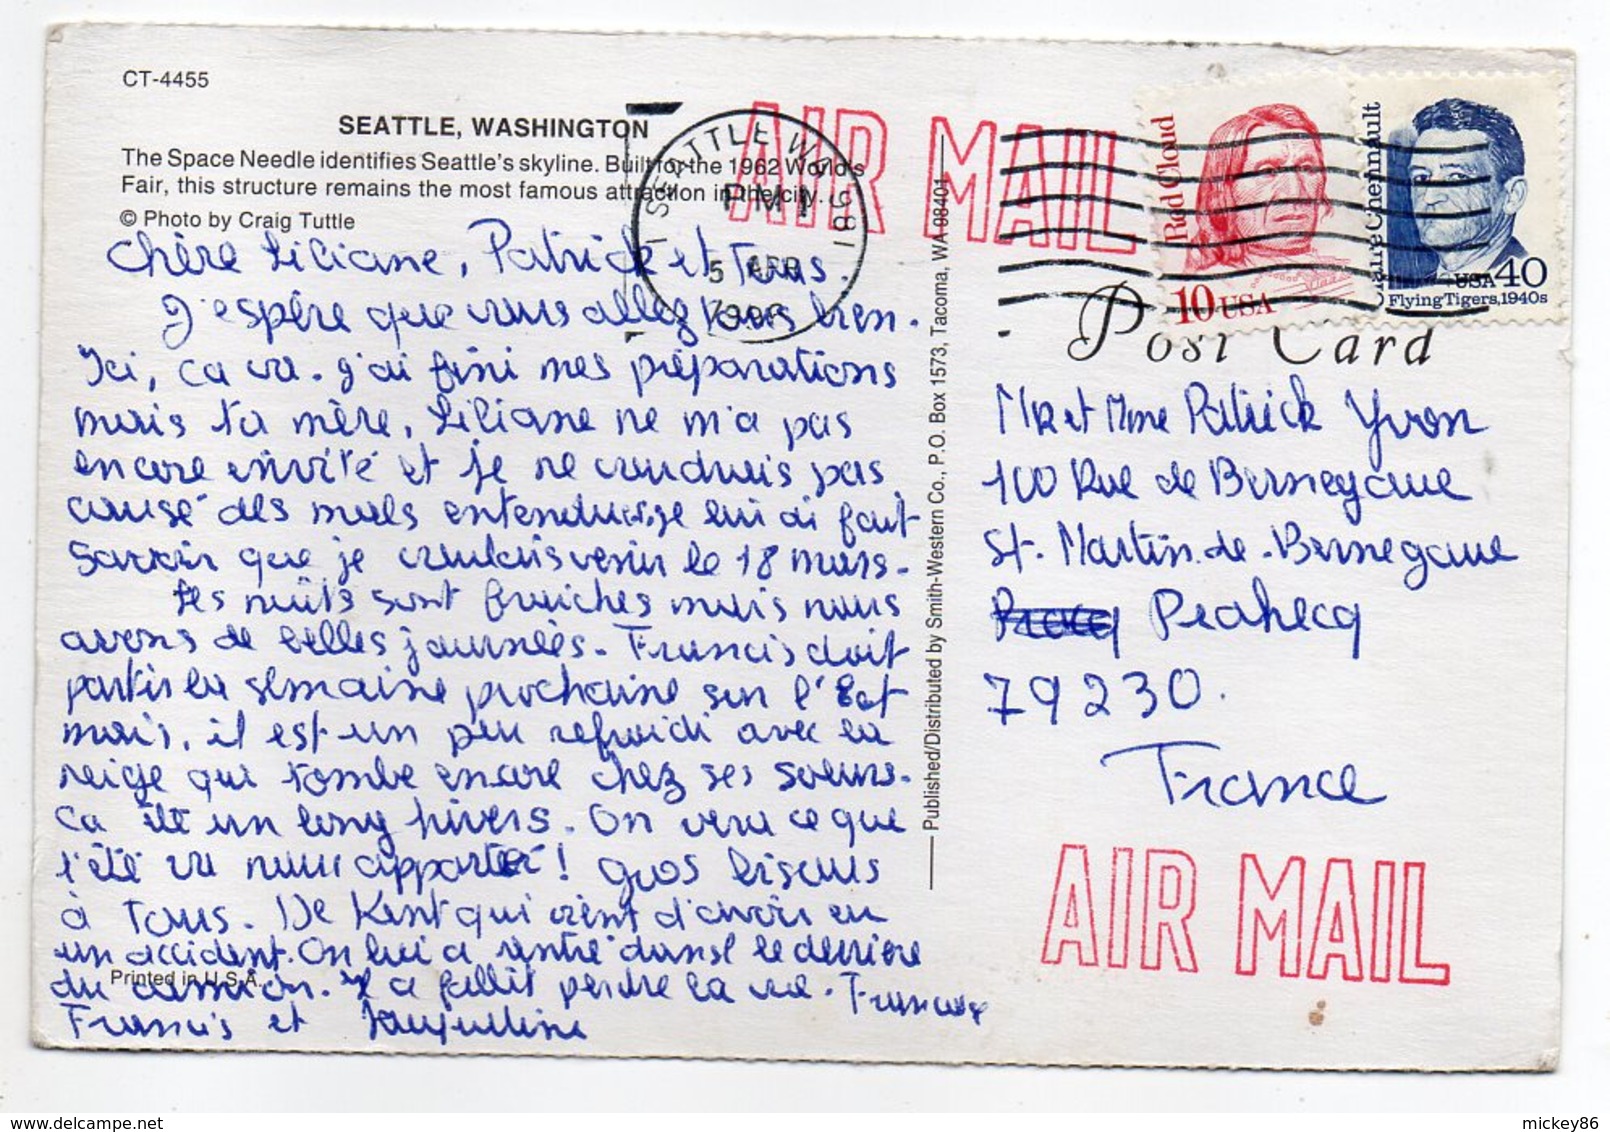 CT-4455
SEATTLE, WASHINGTON
The Space Needle identifies Seattle's skyline. Built for the 1962 World's
Fair, this structure remains the most famous attraction in the city.
© Photo by Craig Tuttle
Chère Liliane, Patrick et Tous.
J'espère que vous allez tous bien.
Ici, ça va. J'ai fini mes préparations
mais ta mère, Liliane ne m'a pas
encore invité et je ne voudrais pas
causé des mals entendus, je lui ai fait
savoir que je voulais venir le 18 mars.
Les nuits sont fraiches mais nous
avons de belles journées. Francis doit
partir la semaine prochaine sur l'Est
mais, il est un peu refroidi avec la
neige qui tombe encore chez ses soeurs.
Ca été un long hivers. On verra ce que
l'été va nous apporter! Gros bisous
à Tous. De Kent qui vient d'avoir eu
un accident. On lui a rentré dans le derrière
du camion. Il a faillit perdre la vie.
Francis et Jacqueline
Printed in U.S.A.
Published/Distributed by Smith-Western Co., P.O. Box 1573, Tacoma, WA 98401
AIR MAIL
SEATTLE WA 981
PM
5 APR
Red Cloud
10 USA
Claire Chennault
USA 40
Flying Tigers, 1940s
Post Card
Mr et Mme Patrick Yvon
100 Rue de Bernegoue
St. Martin.de.Bernegoue
Prahecq
79230.
France
AIR MAIL
mickey86